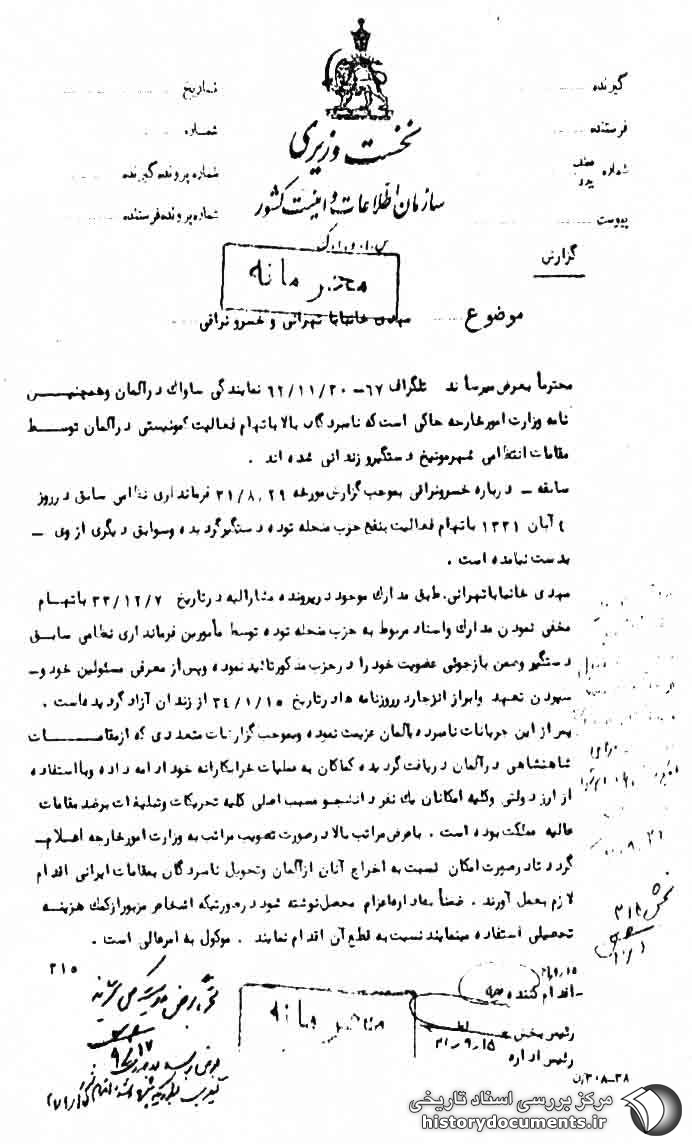 گیرنده
فرستنده
شماره
پیوست
گزارش
تاریخ
شماره
شماره پرونده گیرنده
شماره پرونده فرستنده
نخست وزیری
سازمان اطلاعات و امنیت کشور
س.ا.و.ا.ک
محرمانه
موضوع مهدی خانبابا تهرانی و خسرو نراقی
محترماً بعرض میرساند تلگراف ۶۷ـ ۶۲/۱۱/۲۰ نمایندگی ساواک درآلمان وهمچنین
نامه وزارت امورخارجه حاکی است که نامبردگان بالا باتهام فعالیت کمونیستی درآلمان توسط
مقامات انتظامی شهرمونیخ دستگیرو زندانی شده اند .
سابقه ـ درباره خسرونراقی بموجب گزارش مورخه ۳۱/۸/۲۹ فرمانداری نظامی سابق درروز
٤ آبان ۱۳۳۱ باتهام فعالیت بنفع حزب منحله توده دستگیرگردیده وسوابق دیگری ازوی ـ
بدست نیامده است .
مهدی خانباباتهرانی. طبق مدارک موجود درپرونده مشارالیه درتاریخ ۳۳/۱۲/۷ باتهام
مخفی نمودن مدارک واسناد مربوط به حزب منحله توده توسط مأمورین فرمانداری نظامی سابق
دستگیر وضمن بازجوئی عضویت خود را درحزب مذکورتائید نموده وپس از معرفی مسئولین خود وـ
سپردن تعهد وابراز انزجاردرروزنامه ها درتاریخ ۳٤/۱/۱۵ از زندان آزاد گردیده است .
پس از این جریانات نامبرده بآلمان عزیمت نموده وبموجب گزارشات متعددی که ازمقامات
شاهنشاهی درآلمان دریافت گردیده کماکان به عملیات خرابکارانه خود ادامه داده وبااستفاده
از ارز دولتی وکلیه امکانات یک نفر دانشجو مسبب اصلی کلیه تحریکات وتبلیغات برضد مقامات
عالیه مملکت بوده است . باعرض مراتب بالا درصورت تصویب مراتب به وزارت امورخارجه اعلام
گردد تادرصورت امکان نسبت به اخراج آنان ازآلمان وتحویل نامبردگان بمقامات ایرانی اقدام
لازم بعمل آورند . ضمناً بعد ازه‌اعزام محصل نوشته شود درصورتیکه اشخاص مزبورازکمک هزینه
تحصیلی استفاده مینمایند نسبت به قطع آن اقدام نمایند . موکول به امرعالی است .
۳۱۵
اقدام کننده
رئیس بخش
رئیس اداره
۲۱ـ۹ـ۱۵
محرمانه
۹/۱۷
مرکز بررسی اسناد تاریخی
historydocuments.ir